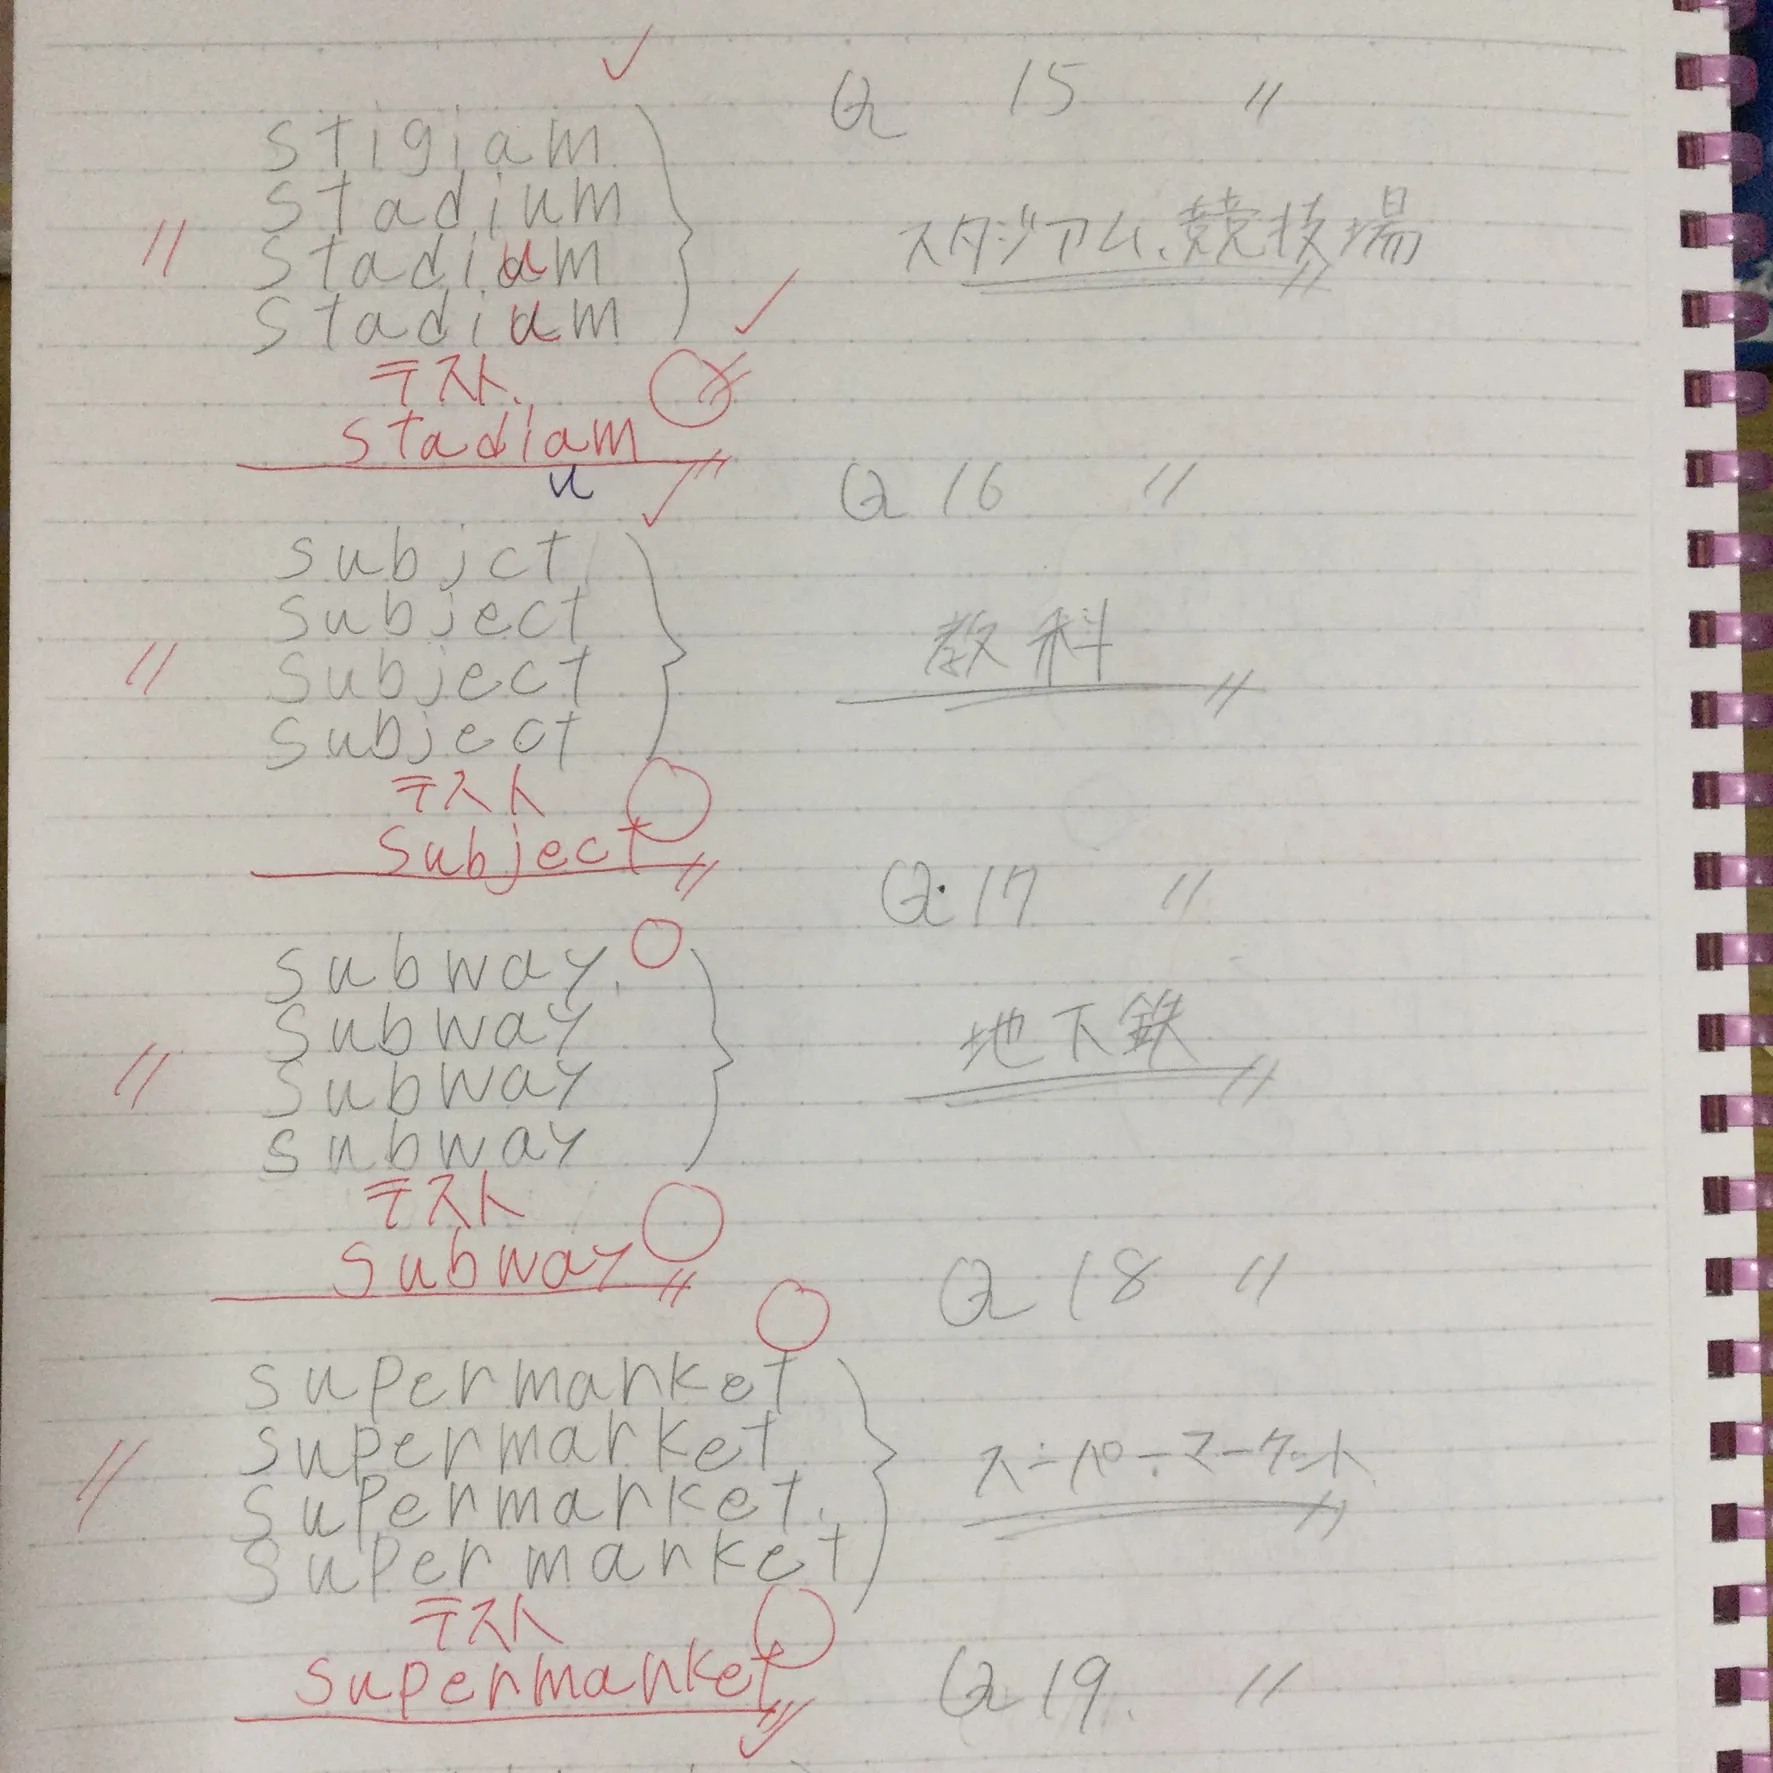 Q 15 〃
stigiam
stadium
stadium
stadium
スタジアム、競技場
テスト
stadiam
u
Q 16 〃
subjct
subject
subject
subject
教科
テスト
subject
Q.17 〃
subway.
subway
subway
subway
地下鉄
テスト
subway
Q 18 〃
supermarket
supermarket
supermarket.
supermarket
スーパーマーケット
テスト
supermarket
Q 19. 〃